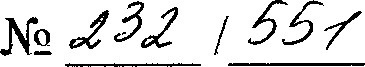 № 232 / 551